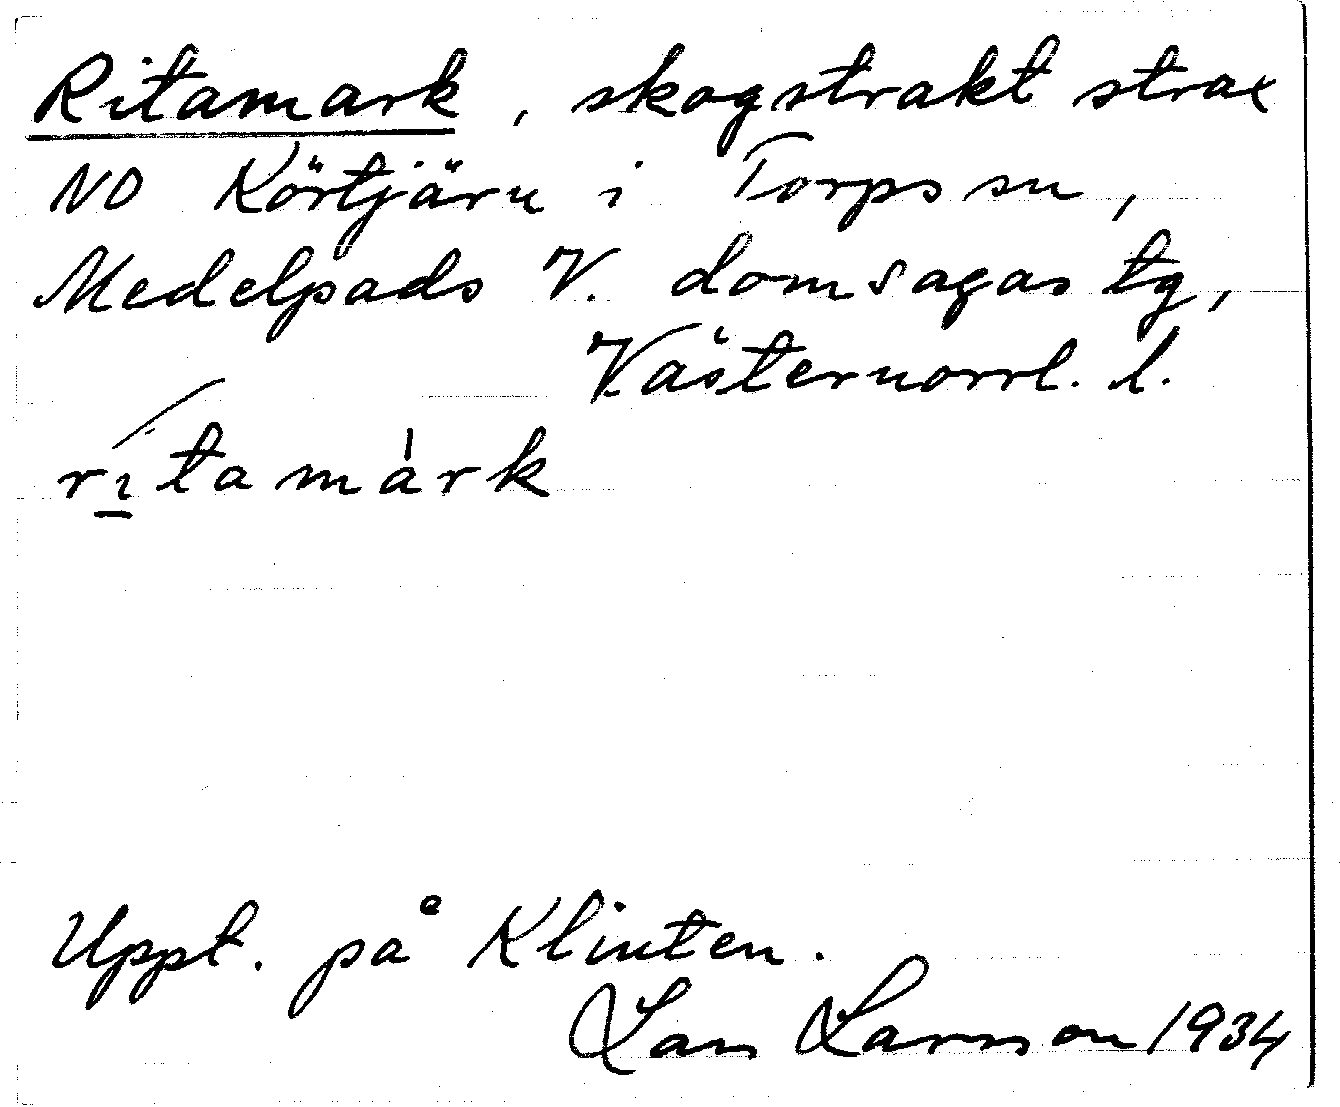 Ritamark, skogstrakt strax
NO Körtjärn i Torps sn,
Medelpads V. domsagas tg,
Västernorrl. l.
rı́tamàrk
Uppt. på Klinten.
Lars Larsson 1934